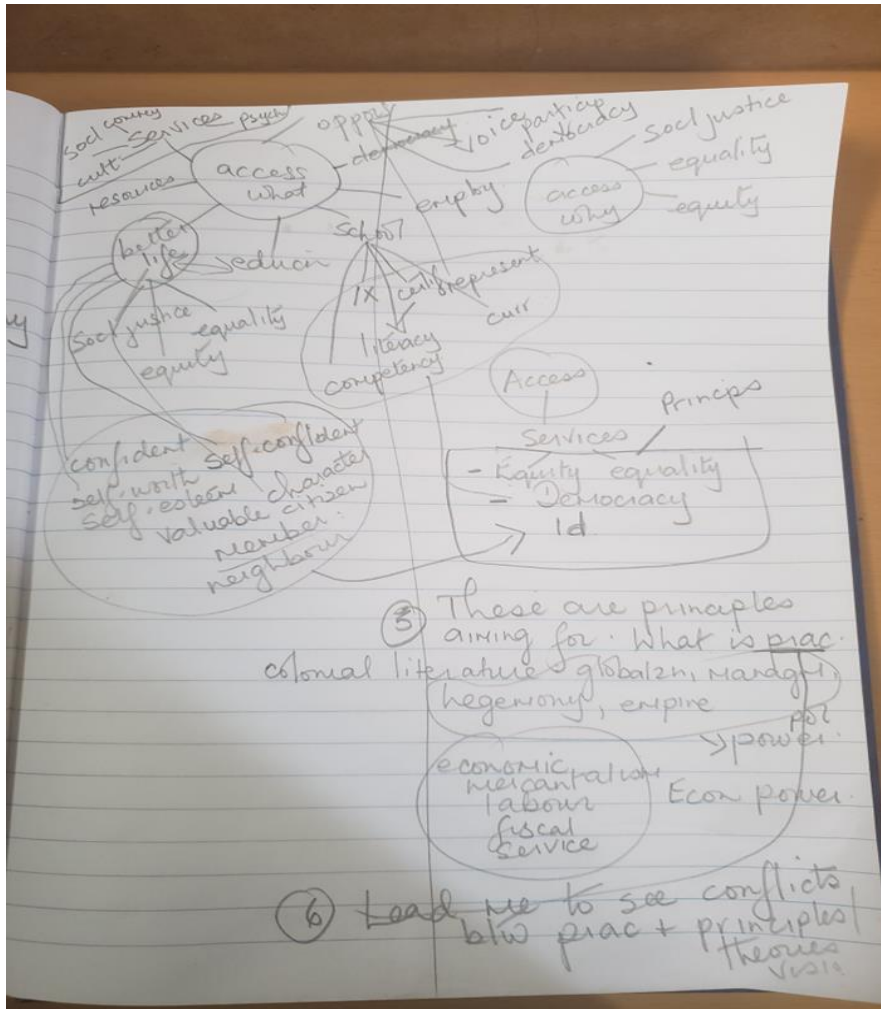 socl country
services psych
cult
resources
access
what
oppor
democracy
voice particip
democracy
employ
access
why
socl justice
equality
equity
better
life
educn
school
socl justice
equality
equity
1x certif represent
curr
literacy
competency
confident self-confident
self-worth
self-esteem character
valuable citizen
member
neighbour
Access
Princips
Services
- Equity equality
- Democracy
Id
y
5 These are principles
aiming for. What is prac.
colonial literature globalzn,
hegemony, empire
pol
power.
economic
mercantalism
labour
fiscal
service
Econ power.
6 Lead me to see conflicts
b/w prac + principles/
theories